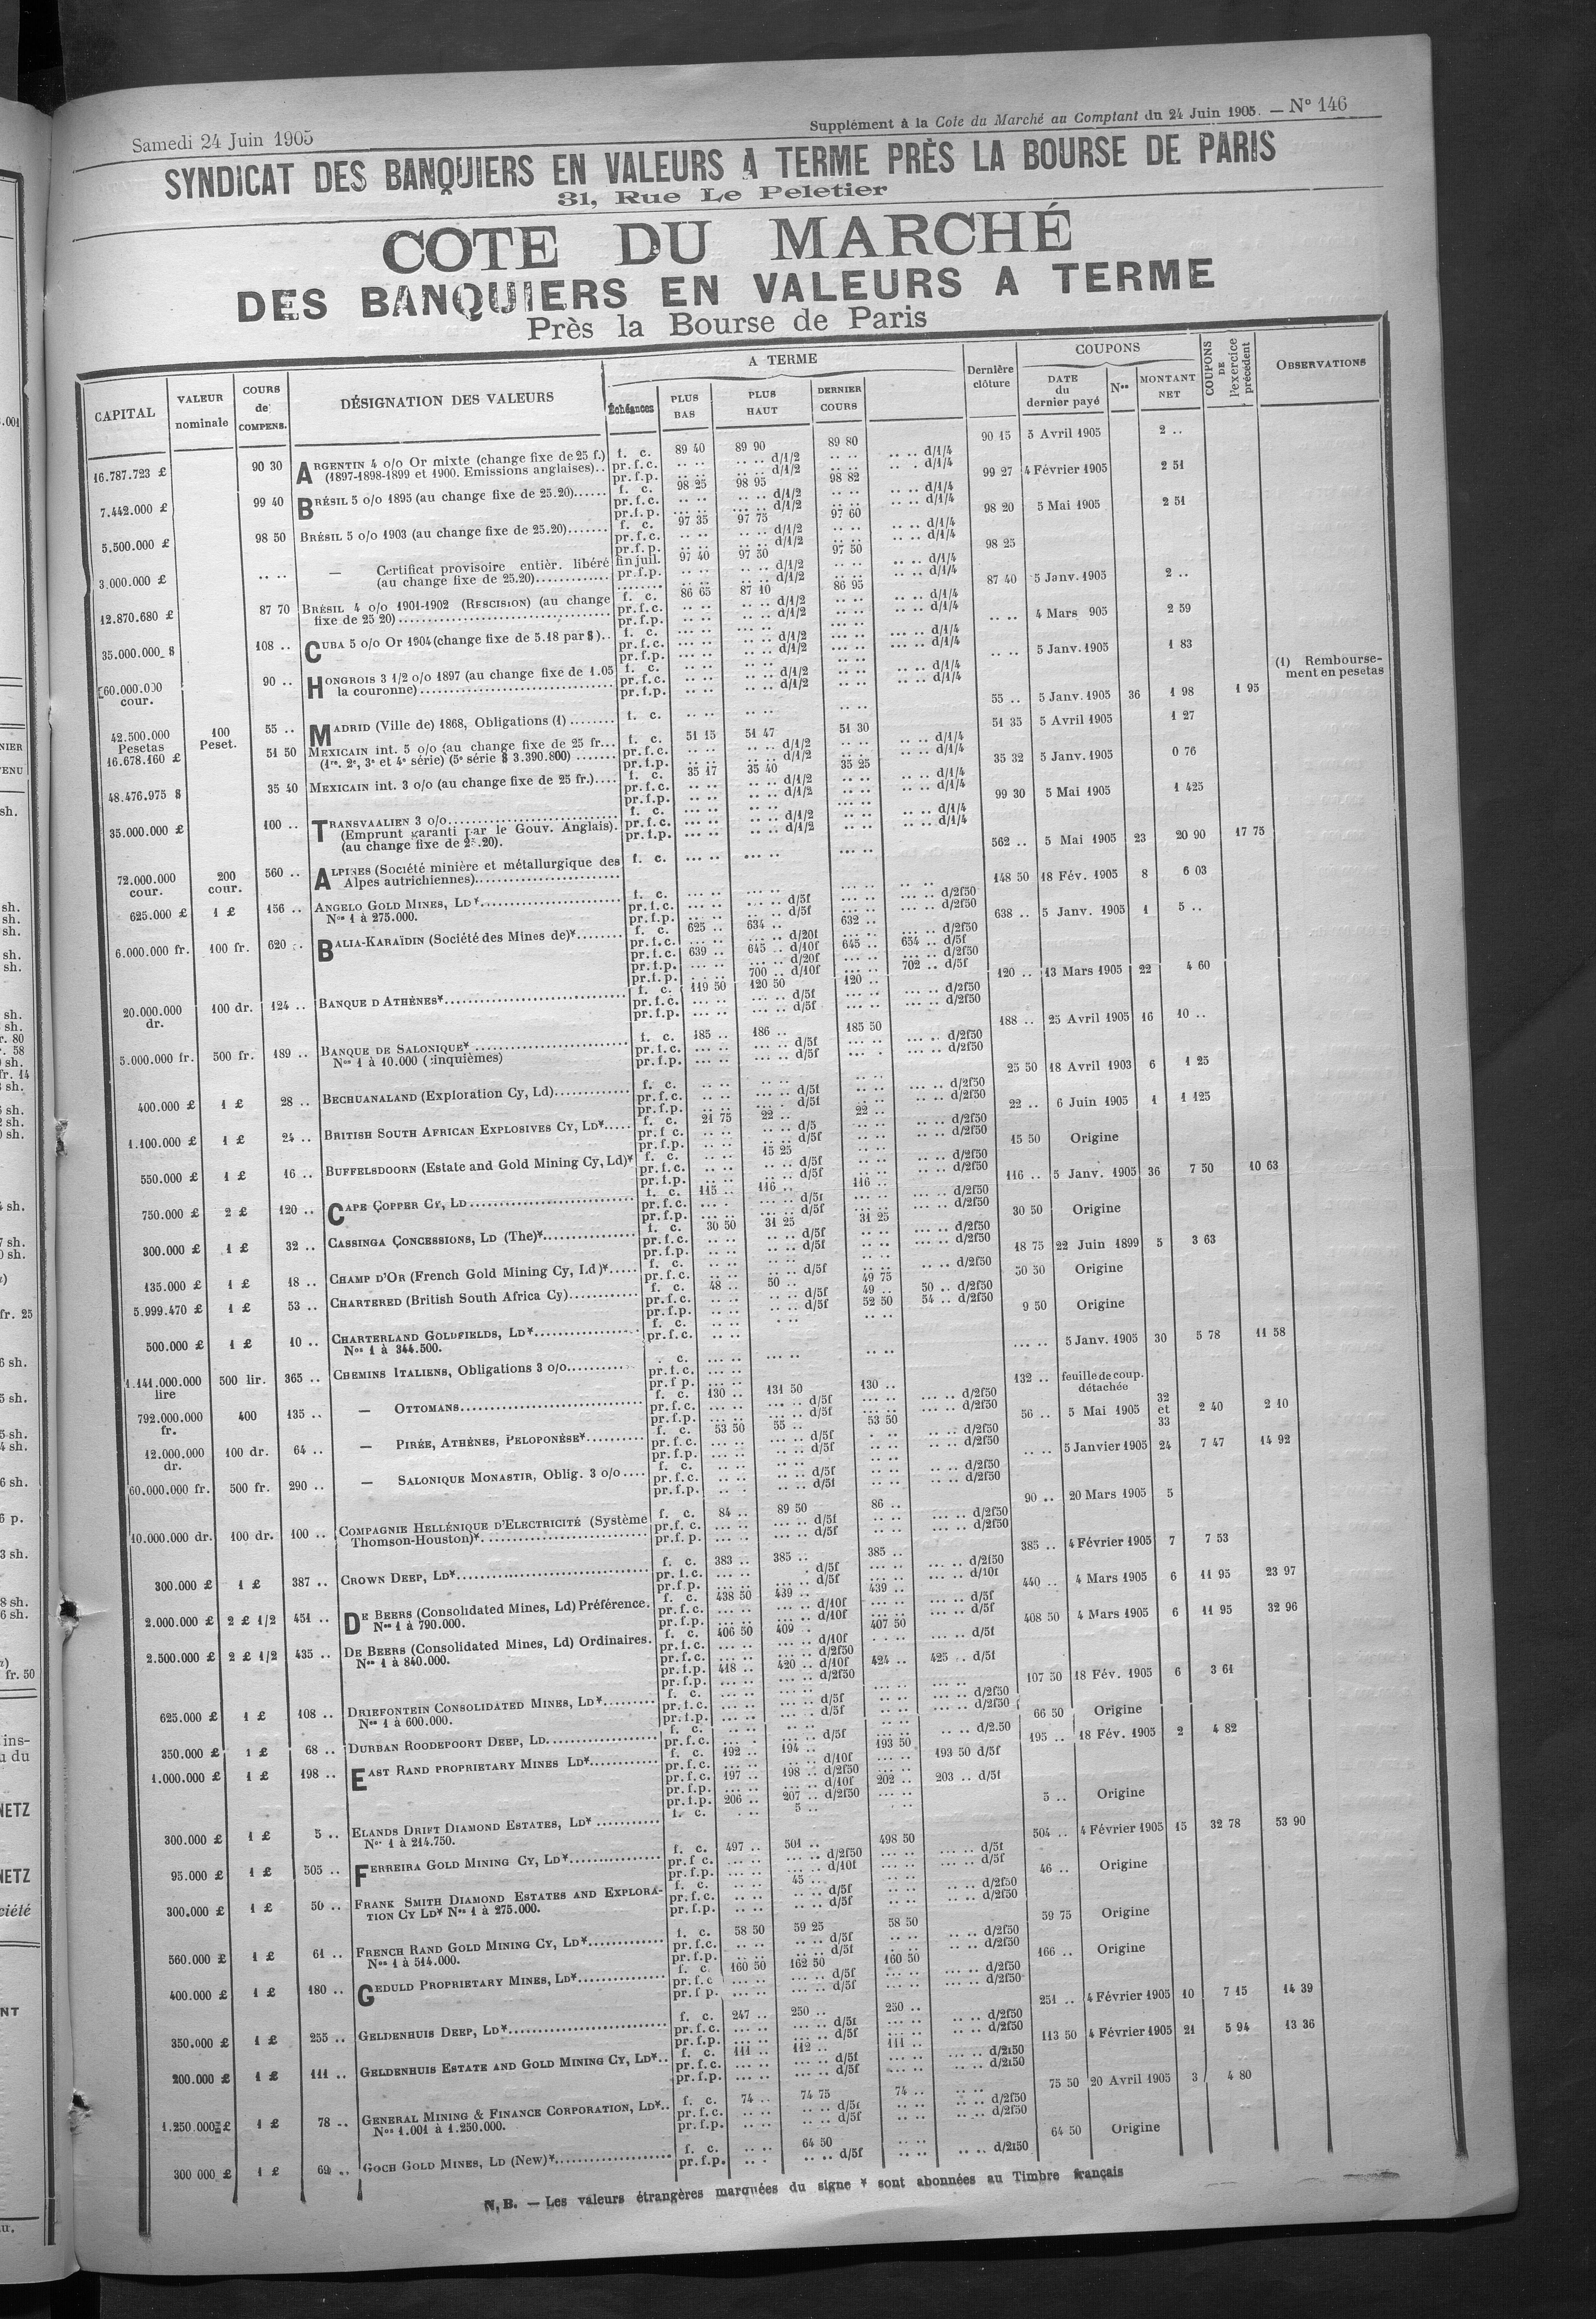 Samedi 24 Juin 1905
Supplément à la Cote du Marché au Comptant du 24 Juin 1905. — N° 146
SYNDICAT DES BANQUIERS EN VALEURS A TERME PRÈS LA BOURSE DE PARIS
31, Rue Le Peletier
COTE DU MARCHÉ
DES BANQUIERS EN VALEURS A TERME
Près la Bourse de Paris
CAPITAL
VALEUR nominale
COURS de COMPENS.
DÉSIGNATION DES VALEURS
A TERME
Échéances
PLUS BAS
PLUS HAUT
DERNIER COURS
Dernière clôture
COUPONS
DATE du dernier payé
Nos
MONTANT NET
COUPONS DE l'exercice précédent
OBSERVATIONS
16.787.723 £ 90 30 ARGENTIN 4 o/o Or mixte (change fixe de 25 f.) f. c. 89 40 89 90 89 80 90 15 5 Avril 1905 2 ..
(1897-1898-1899 et 1900. Emissions anglaises).. pr.f.c. .. .. .. .. d/1/2 .. .. .. .. d/1/4
pr.f.p. .. .. .. .. d/1/2 .. .. .. .. d/1/4
7.442.000 £ 99 40 BRÉSIL 5 o/o 1895 (au change fixe de 25.20)...... f. c. 98 25 98 95 98 82 99 27 4 Février 1905 2 51
pr.f.c. .. .. .. .. d/1/2 .. .. .. .. d/1/4
pr.f.p. .. .. .. .. d/1/2 .. .. .. .. d/1/4
5.500.000 £ 98 50 BRÉSIL 5 o/o 1903 (au change fixe de 25.20)....... f. c. 97 35 97 75 97 60 98 20 5 Mai 1905 2 51
pr.f.c. .. .. .. .. d/1/2 .. .. .. .. d/1/4
pr.f.p. .. .. .. .. d/1/2 .. .. .. .. d/1/4
3.000.000 £ .. .. — Certificat provisoire entièr. libéré fin juil. 97 40 97 50 97 50 98 25
(au change fixe de 25.20)............ pr.f.p. .. .. .. .. d/1/2 .. .. .. .. d/1/4
12.870.680 £ 87 70 BRÉSIL 4 o/o 1901-1902 (RESCISION) (au change f. c. 86 65 87 10 86 95 87 40 5 Janv. 1905 2 ..
fixe de 25 20)................ pr.f.c. .. .. .. .. d/1/2 .. .. .. .. d/1/4
pr.f.p. .. .. .. .. d/1/2 .. .. .. .. d/1/4
35.000.000 $ 108 .. CUBA 5 o/o Or 1904 (change fixe de 5.18 par $).. f. c. .. .. 4 Mars 905 2 59
pr.f.c. ... .. ... .. d/1/2 ... .. ... .. d/1/4
pr.f.p. ... .. ... .. d/1/2 ... .. ... .. d/1/4
60.000.000 cour. 90 .. HONGROIS 3 1/2 o/o 1897 (au change fixe de 1.05 f. c. .. .. 5 Janv. 1905 1 83
la couronne)................ pr.f.c. .. .. .. .. d/1/2 .. .. .. .. d/1/4
pr.f.p. .. .. .. .. d/1/2 .. .. .. .. d/1/4
42.500.000 Pesetas 100 Peset. 55 .. MADRID (Ville de) 1868, Obligations (1)........ f. c. .. .. .. .. .. .. 55 .. 5 Janv. 1905 36 1 98 1 95 (1) Remboursement en pesetas
16.678.160 £ 51 50 MEXICAIN int. 5 o/o (au change fixe de 25 fr... f. c. 51 15 51 47 51 30 51 35 5 Avril 1905 1 27
(1re. 2e, 3e et 4e série) (5e série $ 3.390.800)....... pr.f.c. .. .. .. .. d/1/2 .. .. .. .. d/1/4
pr.f.p. .. .. .. .. d/1/2 .. .. .. .. d/1/4
48.476.975 $ 35 40 MEXICAIN int. 3 o/o (au change fixe de 25 fr.).... f. c. 35 17 35 40 35 25 35 32 5 Janv. 1905 0 76
pr.f.c. .. .. .. .. d/1/2 .. .. .. .. d/1/4
pr.f.p. .. .. .. .. d/1/2 .. .. .. .. d/1/4
35.000.000 £ 100 .. TRANSVAALIEN 3 o/o............ f. c. 99 30 5 Mai 1905 1 425
(Emprunt garanti par le Gouv. Anglais). pr.f.c. ... .. .. .. d/1/2 .. .. .. .. d/1/4
(au change fixe de 25.20). pr.f.p. ... .. .. .. d/1/2 .. .. .. .. d/1/4
72.000.000 cour. 200 cour. 560 .. ALPINES (Société minière et métallurgique des f. c. ... .. ... .. ... .. 562 .. 5 Mai 1905 23 20 90 17 75
Alpes autrichiennes)................
625.000 £ 1 £ 156 .. ANGELO GOLD MINES, LD*............ f. c. 148 50 18 Fév. 1905 8 6 03
Nos 1 à 275.000. pr.f.c. ... .. ... .. d/5f ... .. ... .. d/2f50
pr.f.p. ... .. ... .. d/5f ... .. ... .. d/2f50
6.000.000 fr. 100 fr. 620 .. BALIA-KARAÏDIN (Société des Mines de)*........ f. c. 625 .. 634 .. 632 .. 638 .. 5 Janv. 1905 1 5 ..
pr.f.c. ... .. ... .. d/20f ... .. ... .. d/2f50
pr.f.c. 639 .. 645 .. d/10f 645 .. 654 .. d/5f
pr.f.p. ... .. ... .. d/20f ... .. ... .. d/2f50
pr.f.p. ... .. 700 .. d/10f ... .. 702 .. d/5f
20.000.000 dr. 100 dr. 124 .. BANQUE D'ATHÈNES*............ f. c. 119 50 120 50 120 .. 120 .. 13 Mars 1905 22 4 60
pr.f.c. ... .. ... .. d/5f ... .. ... .. d/2f50
pr.f.p. ... .. ... .. d/5f ... .. ... .. d/2f50
5.000.000 fr. 500 fr. 189 .. BANQUE DE SALONIQUE*............ f. c. 185 .. 186 .. 185 50 188 .. 25 Avril 1905 16 10 ..
Nos 1 à 10.000 (cinquièmes) pr.f.c. ... .. ... .. d/5f ... .. ... .. d/2f50
pr.f.p. ... .. ... .. d/5f ... .. ... .. d/2f50
400.000 £ 1 £ 28 .. BECHUANALAND (Exploration Cy, Ld)............ f. c. .. .. .. .. .. .. 25 50 18 Avril 1903 6 1 25
pr.f.c. .. .. .. .. d/5f .. .. .. .. d/2f50
pr.f.p. .. .. .. .. d/5f .. .. .. .. d/2f50
1.100.000 £ 1 £ 24 .. BRITISH SOUTH AFRICAN EXPLOSIVES CY, LD*..... f. c. 21 75 22 .. 22 .. 22 .. 6 Juin 1905 1 1 125
pr.f.c. .. .. .. .. d/5 .. .. .. .. d/2f50
pr.f.p. .. .. .. .. d/5f .. .. .. .. d/2f50
550.000 £ 1 £ 16 .. BUFFELSDOORN (Estate and Gold Mining Cy, Ld)* f. c. .. .. 15 25 .. .. 15 50 Origine
pr.f.c. .. .. .. .. d/5f .. .. .. .. d/2f50
pr.f.p. .. .. .. .. d/5f .. .. .. .. d/2f50
750.000 £ 2 £ 120 .. CAPE COPPER CY, LD............ f. c. 115 .. 116 .. 116 .. 116 .. 5 Janv. 1905 36 7 50 10 63
pr.f.c. ... .. ... .. d/5f ... .. ... .. d/2f50
pr.f.p. ... .. ... .. d/5f ... .. ... .. d/2f50
300.000 £ 1 £ 32 .. CASSINGA CONCESSIONS, LD (The)*............ f. c. 30 50 31 25 31 25 30 50 Origine
pr.f.c. .. .. .. .. d/5f .. .. .. .. d/2f50
pr.f.p. .. .. .. .. d/5f .. .. .. .. d/2f50
135.000 £ 1 £ 18 .. CHAMP D'OR (French Gold Mining Cy, Ld)*..... f. c. 18 75 22 Juin 1899 5 3 63
pr.f.c. .. .. .. .. d/5f .. .. .. .. d/2f50
5.999.470 £ 1 £ 53 .. CHARTERED (British South Africa Cy)............ f. c. 48 .. 50 .. 49 75 50 50 Origine
pr.f.c. .. .. .. .. d/5f 49 .. 50 .. d/2f50
pr.f.p. .. .. .. .. d/5f 52 50 54 .. d/2f50
500.000 £ 1 £ 10 .. CHARTERLAND GOLDFIELDS, LD*............ f. c. 9 50 Origine
Nos 1 à 344.500. pr.f.c. .. ..
1.141.000.000 lire 500 lir. 365 .. CHEMINS ITALIENS, Obligations 3 o/o............ f. c. ... .. ... .. .. .. ... .. 5 Janv. 1905 30 5 78 11 58
pr.f.c. ... ..
pr.f.p. ... ..
792.000.000 fr. 400 135 .. — OTTOMANS............ f. c. 130 .. 131 50 130 .. 132 .. feuille de coup. détachée
pr.f.c. ... .. ... .. d/5f ... .. ... .. d/2f50
pr.f.p. ... .. ... .. d/5f ... .. ... .. d/2f50
12.000.000 dr. 100 dr. 64 .. — PIRÉE, ATHÈNES, PELOPONÈSE*.......... f. c. 53 50 55 .. 53 50 56 .. 5 Mai 1905 32 et 33 2 40 2 10
pr.f.c. .. .. .. .. d/5f .. .. .. .. d/2f50
pr.f.p. .. .. .. .. d/5f .. .. .. .. d/2f50
60.000.000 fr. 500 fr. 290 .. — SALONIQUE MONASTIR, Oblig. 3 o/o.... f. c. .. .. 5 Janvier 1905 24 7 47 14 92
pr.f.c. .. .. .. .. d/5f .. .. .. .. d/2f50
pr.f.p. .. .. .. .. d/5f .. .. .. .. d/2f50
10.000.000 dr. 100 dr. 100 .. COMPAGNIE HELLÉNIQUE D'ELECTRICITÉ (Système f. c. 84 .. 89 50 86 .. 90 .. 20 Mars 1905 5
Thomson-Houston)*............ pr.f.c. ... .. ... .. d/5f .. .. ... .. d/2f50
pr.f.p. ... .. ... .. d/5f .. .. ... .. d/2f50
300.000 £ 1 £ 387 .. CROWN DEEP, LD*............ f. c. 383 .. 385 .. 385 .. 385 .. 4 Février 1905 7 7 53
pr.f.c. ... .. ... .. d/5f ... .. ... .. d/2f50
pr.f.p. ... .. ... .. d/5f ... .. ... .. d/10f
2.000.000 £ 2 £ 1/2 451 .. DE BEERS (Consolidated Mines, Ld) Préférence. f. c. 438 50 439 .. 439 .. 440 .. 4 Mars 1905 6 11 95 23 97
Nos 1 à 790.000. pr.f.c. ... .. ... .. d/10f ... .. ... .. d/5f
pr.f.p. ... .. ... .. d/10f ... .. ... .. d/5f
2.500.000 £ 2 £ 1/2 435 .. DE BEERS (Consolidated Mines, Ld) Ordinaires. f. c. 406 50 409 . 407 50 408 50 4 Mars 1905 6 11 95 32 96
Nos 1 à 840.000. pr.f.c. ... .. ... .. d/10f ... .. ... .. d/5f
pr.f.c. ... .. ... .. d/2f50
pr.f.p. 418 .. 420 .. d/10f 424 .. 425 .. d/5f
pr.f.p. ... .. ... .. d/2f50
625.000 £ 1 £ 108 .. DRIEFONTEIN CONSOLIDATED MINES, LD*......... f. c. 107 50 18 Fév. 1905 6 3 61
Nos 1 à 600.000. pr.f.c. ... .. ... .. d/5f ... .. ... .. d/2f50
pr.f.p. ... .. ... .. d/5f ... .. ... .. d/2f50
350.000 £ 1 £ 68 .. DURBAN ROODEPOORT DEEP, LD............ f. c. 66 50 Origine
pr.f.c. .. .. .. .. d/5f .. .. .. .. d/2.50
1.000.000 £ 1 £ 198 .. EAST RAND PROPRIETARY MINES LD*............ f. c. 192 .. 194 .. 193 50 195 .. 18 Fév. 1905 2 4 82
pr.f.c. ... .. ... .. d/10f ... .. 193 50 d/5f
pr.f.c. 197 .. 198 .. d/2f50
pr.f.p. ... .. ... .. d/10f 202 .. 203 .. d/5f
pr.f.p. 206 .. 207 .. d/2f50
300.000 £ 1 £ 5 .. ELANDS DRIFT DIAMOND ESTATES, LD*........... f. c. .. .. 5 .. .. .. 5 .. Origine
Nos 1 à 214.750.
95.000 £ 1 £ 505 .. FERREIRA GOLD MINING CY, LD*............ f. c. 497 .. 501 .. 498 50 504 .. 4 Février 1905 15 32 78 53 90
pr.f.c. ... .. ... .. d/2f50 ... .. ... .. d/5f
pr.f.p. ... .. ... .. d/10f ... .. ... .. d/5f
300.000 £ 1 £ 50 .. FRANK SMITH DIAMOND ESTATES AND EXPLORA- f. c. .. .. 45 .. .. .. 46 .. Origine
TION CY LD* Nos 1 à 275.000. pr.f.c. .. .. .. .. d/5f .. .. .. .. d/2f50
pr.f.p. .. .. .. .. d/5f .. .. .. .. d/2f50
560.000 £ 1 £ 61 .. FRENCH RAND GOLD MINING CY, LD*............ f. c. 58 50 59 25 58 50 59 75 Origine
Nos 1 à 514.000. pr.f.c. .. .. .. .. d/5f .. .. .. .. d/2f50
pr.f.p. .. .. .. .. d/5f .. .. .. .. d/2f50
400.000 £ 1 £ 180 .. GEDULD PROPRIETARY MINES, LD*............ f. c. 160 50 162 50 160 50 166 .. Origine
pr.f.c ... .. ... .. d/5f ... .. ... .. d/2f50
pr.f p. ... .. ... .. d/5f ... .. ... .. d/2f50
350.000 £ 1 £ 255 .. GELDENHUIS DEEP, LD*............ f. c. 247 .. 250 .. 250 .. 251 .. 4 Février 1905 10 7 15 14 39
pr.f.c. ... .. ... .. d/5f ... .. .. .. d/2f50
pr.f.p. ... .. ... .. d/5f ... .. .. .. d/2f50
200.000 £ 1 £ 111 .. GELDENHUIS ESTATE AND GOLD MINING CY, LD*.. f. c. 111 .. 112 .. 111 .. 113 50 4 Février 1905 21 5 94 13 36
pr.f.c. ... .. ... .. d/5f ... .. ... .. d/2f50
pr.f.p. ... .. ... .. d/5f ... .. ... .. d/2f50
1.250.000 £ 1 £ 78 .. GENERAL MINING & FINANCE CORPORATION, LD*.. f. c. 74 .. 74 75 74 .. 75 50 20 Avril 1905 3 4 80
Nos 1.001 à 1.250.000. pr.f.c. .. .. .. .. d/5f .. .. .. .. d/2f50
pr.f.p. .. .. .. .. d/5f .. .. .. .. d/2f50
300 000 £ 1 £ 69 .. GOCH GOLD MINES, LD (New)*............ f. c. .. .. 64 50 .. .. 64 50 Origine
pr.f.p. .. . .. .. d/5f .. .. .. .. d/2f50
N. B. — Les valeurs étrangères marquées du signe * sont abonnées au Timbre français